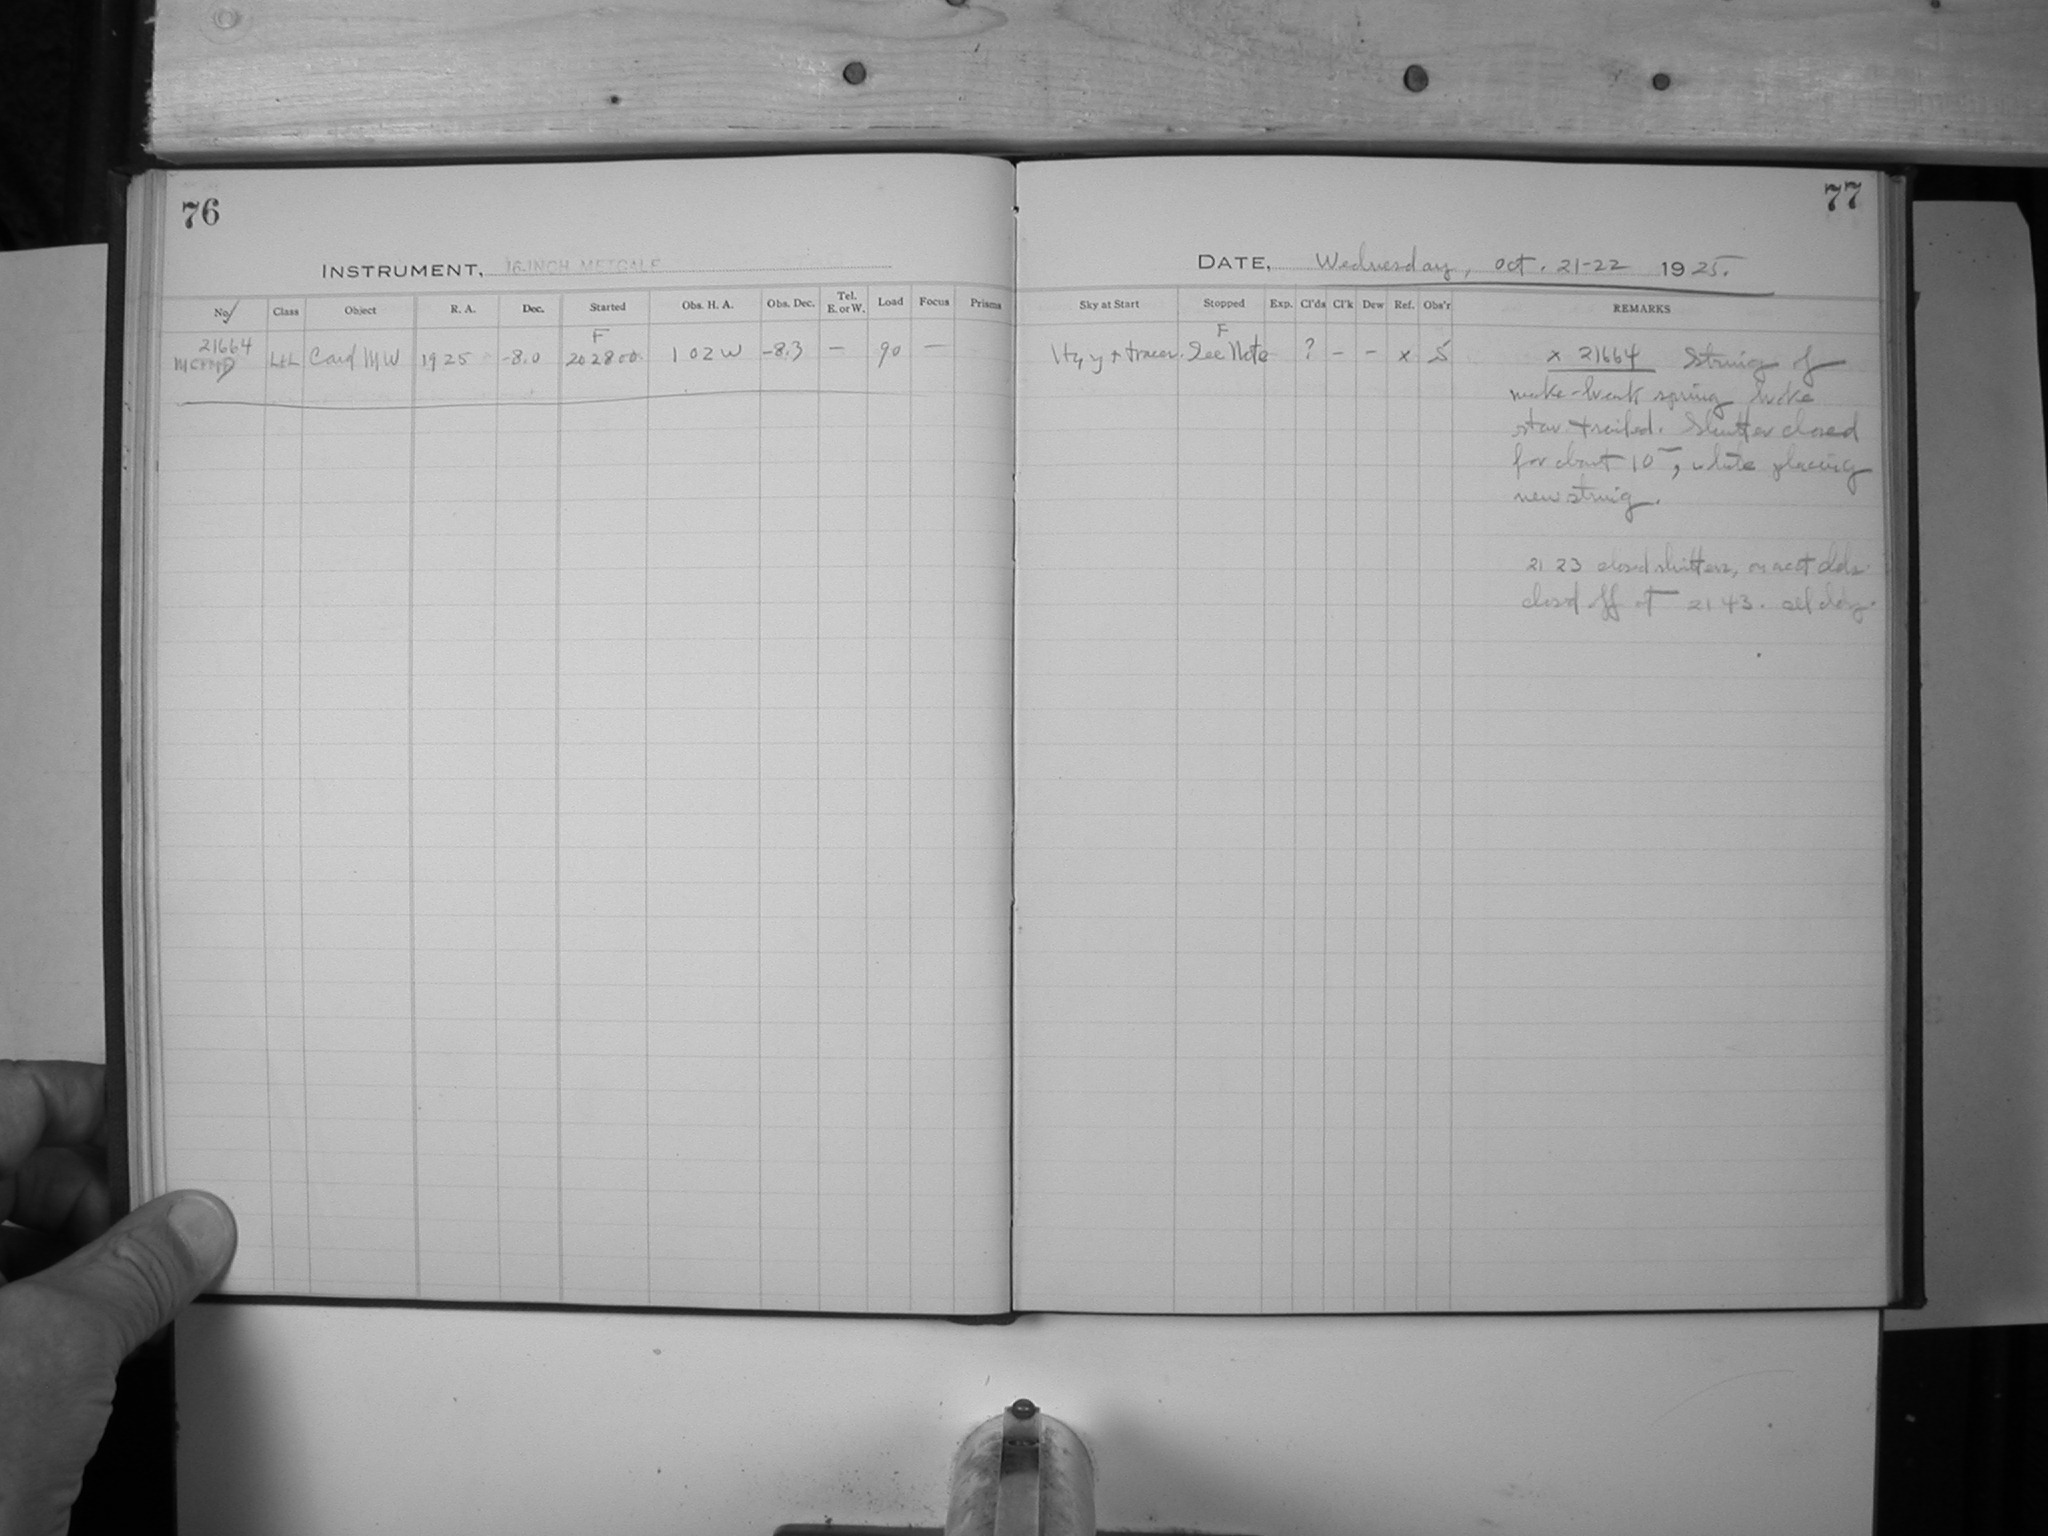 76
INSTRUMENT, 16-INCH METCALF
No. Class Object R. A. Dec. Started Obs. H. A. Obs. Dec. Tel. E. or W. Load Focus Prisms
F
21664
MC L+L Card MW 1925 -8.0 202800 1 02 W -8.3 — 90 —
77
DATE, Wednesday, Oct. 21-22 1925.
Sky at Start Stopped Exp. Cl'ds Cl'k Dew Ref. Obs'r REMARKS
F
See Note ? - - x S x 21664 String of
make-break spring broke
star trailed. Shutter closed
for about 10 , while placing
new string.
21 23 closed shutters, on acct clds.
closed off at 21 43. all cldy.